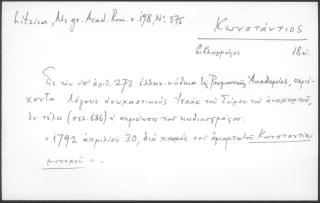 Litzica, Ms gr. Acad. Rom. σ. 198, No. 375
Κωνστάντιος
βιβλιογράφος 18 αἰ.
Εἰς τὸν ὑπ' ἀριθ. 273 ἑλλην. κώδικα τῆς Ρουμανικῆς Ἀκαδημίας, περιέ-
χοντα λόγους ἡσυχαστικοὺς Ἰσαὰκ τοῦ Σύρου τοῦ ἀναχωρητοῦ,
ἐν τέλει (σελ. 686) ἡ σημείωσις τοῦ κωδικογράφου:
« 1792 ἀπριλίου 30, διὰ χειρὸς τοῦ ἁμαρτωλοῦ Κωνσταντίου
μοναχοῦ ».